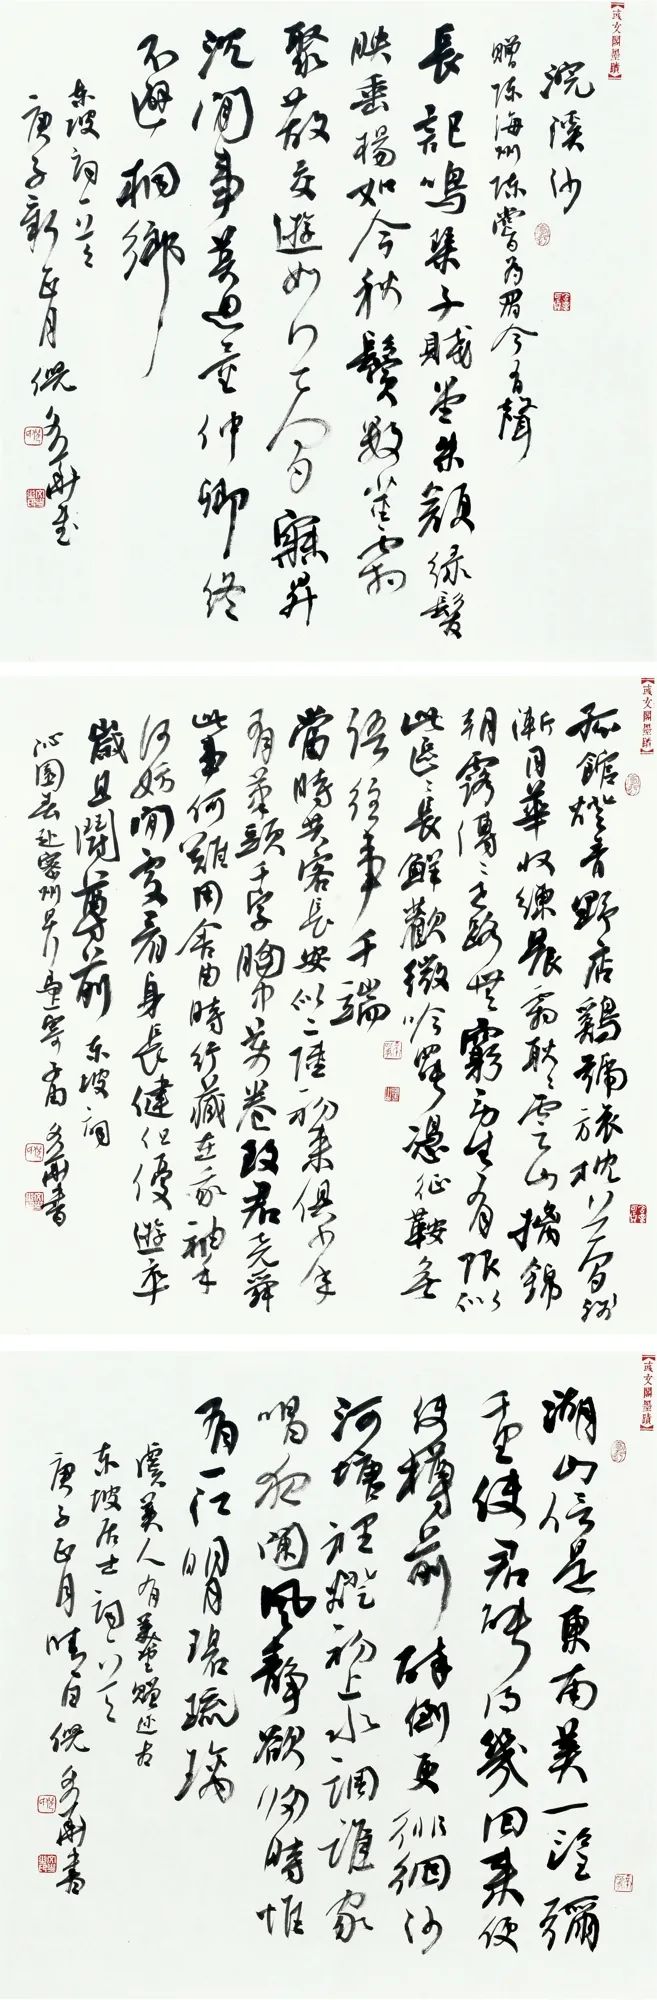 【彧文閣墨蹟】
浣溪沙
贈陳海州陳嘗為眉令有聲
長記鳴琴子賤堂朱顏綠髮
映垂楊如今秋鬢數莖霜
聚散交遊如夢寐昇
沉閒事莫思量仲卿終
不避桐鄉
東坡詞一首
庚子新正月倪 華書
【彧文閣墨蹟】
孤館燈青野店鷄號旅枕夢殘
漸月華收練晨霜耿耿雲山摛錦
朝露漙漙世路無窮勞生有限似
此區區長鮮歡微吟罷憑征鞍無
語往事千端
當時共客長安似二陸初來俱少年
有筆頭千字胸中萬卷致君堯舜
此事何難用舍由時行藏在我袖手
何妨閒處看身長健但優遊卒
歲且鬪尊前 東坡詞
沁園春赴密州早行馬上寄子由 華書
【彧文閣墨蹟】
湖山信是東南美一望彌
千里使君能得幾回來便
使樽前醉倒更徘徊沙
河塘裡燈初上水調誰家
唱夜闌風靜欲歸時惟
有一江明月碧琉璃
虞美人有美堂贈述古
東坡居士詞一首
庚子正月晴日倪 華書